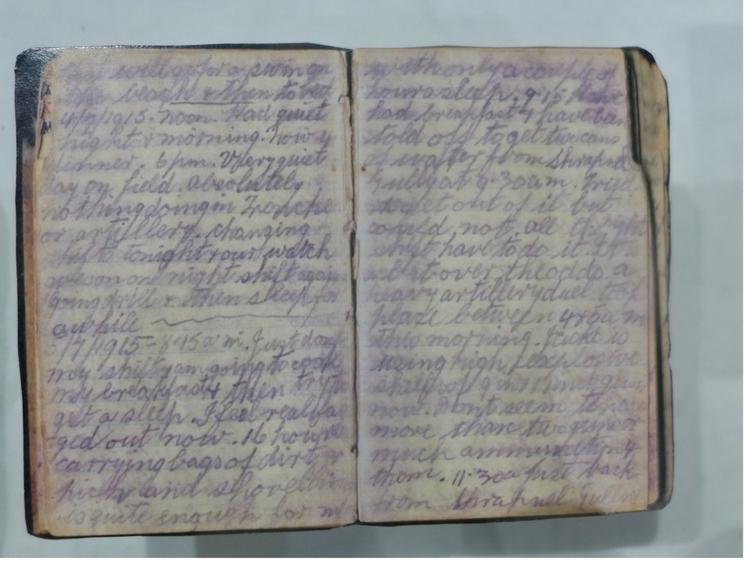 will go for a swim on
the beach & then to bed
4/7/1915. noon. Had quiet
night & morning. now
dinner. 6 pm. Very quiet
day on field. absolutely
nothing doing in Trenche
or artillery. changing
shifts tonight & our watch
on night shift again
going & then sleep for
awhile
5/7/1915 - 4.15 a.m. Just done
my shift & am going to cook
my breakfast & then try &
get a sleep. I feel real fa
ged out now. 16 hours
carrying bags of dirt &
pick and shovelling
is quite enough for m
with only a couple of
hours sleep. 9.15 Have
had breakfast & have been
told off to get two cans
of water from Shrapnel
Gully at 9.30 am. Tried
to get out of it but
could not. all the night
shift have to do it. It
is a bit over the odds. a
heavy artillery duel took
place between 4 & 5 a m
this morning. Jacko is
using high explosive
shells
now. Dont seem to have
more than two guns or
much ammunition 4
them. 11.30 a just back
from Shrapnel Gully